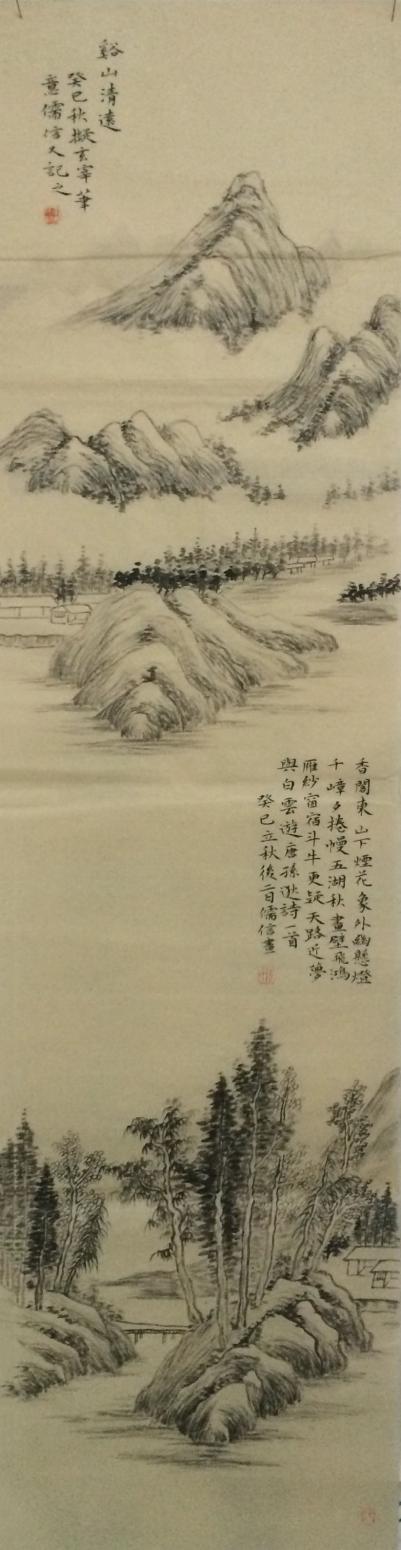 谿山清遠
癸巳秋擬玄宰筆
意儒信又記之
香閣東山下煙花象外幽懸燈
千嶂夕捲幔五湖秋畫壁飛鴻
雁紗窗宿斗牛更疑天路近夢
與白雲遊唐孫逖詩一首
癸巳立秋後二日儒信畫